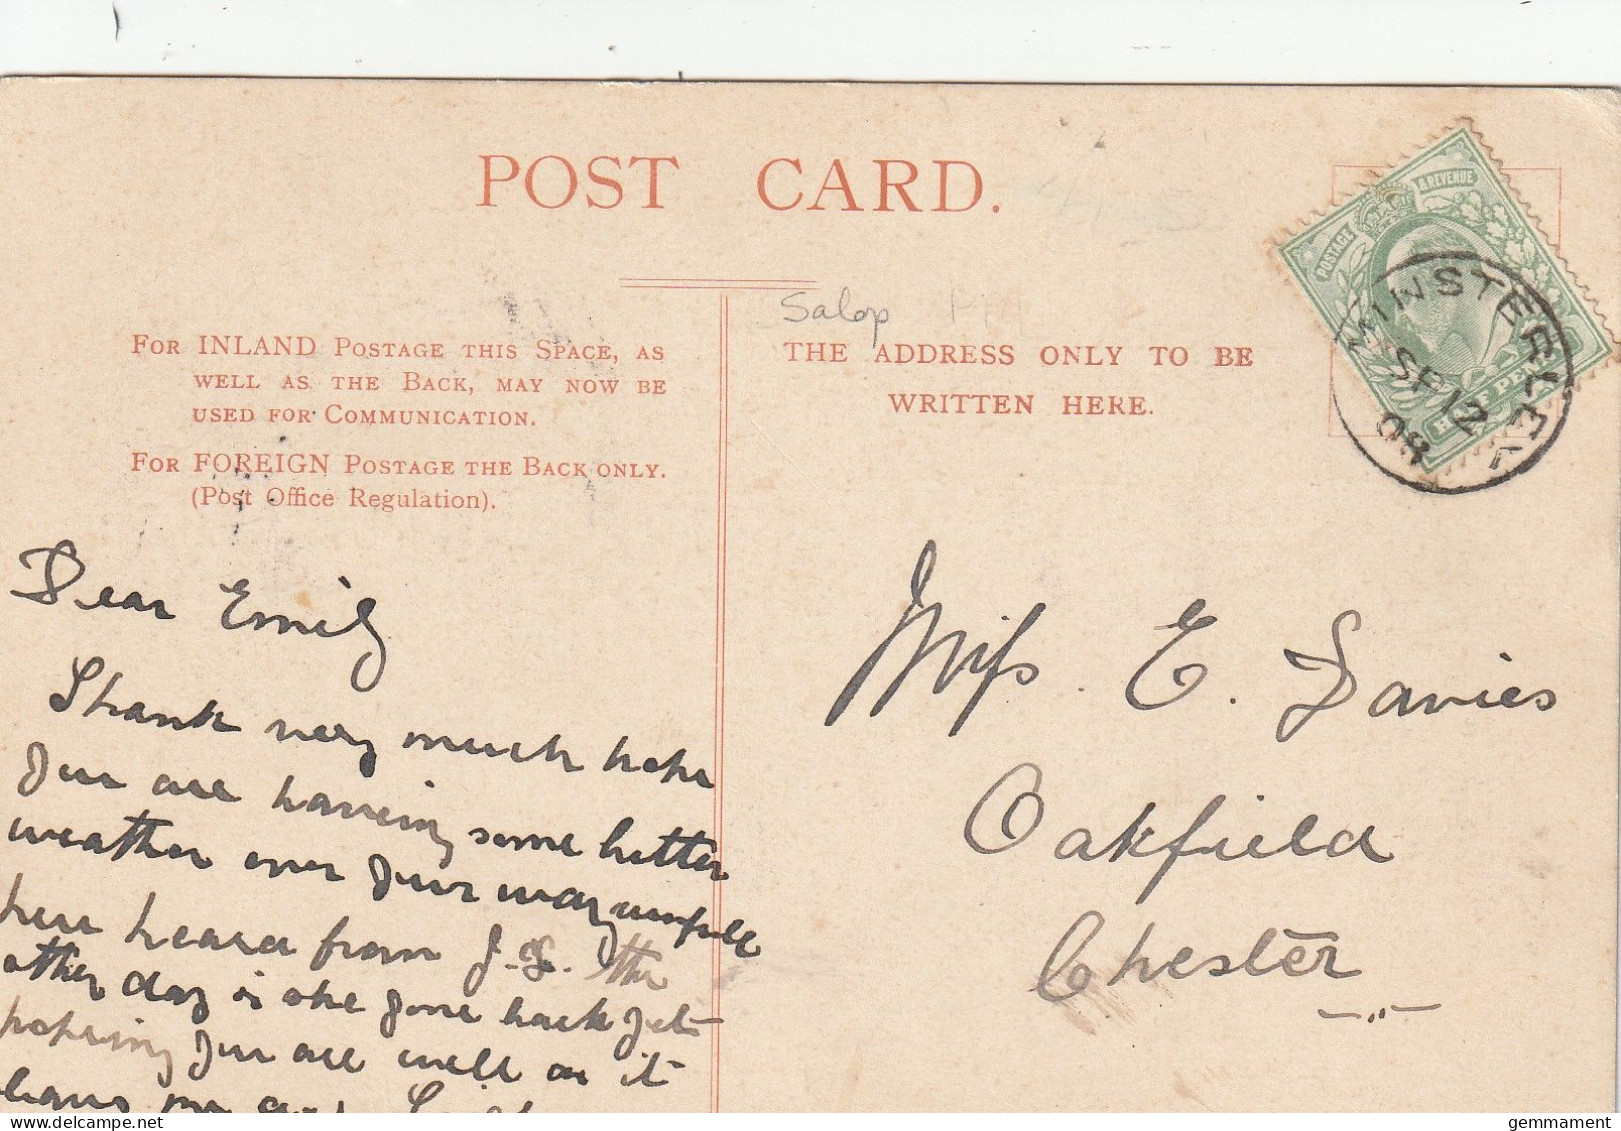 POST CARD.
Salop
FOR INLAND POSTAGE THIS SPACE, AS
WELL AS THE BACK, MAY NOW BE
USED FOR COMMUNICATION.
FOR FOREIGN POSTAGE THE BACK ONLY.
(Post Office Regulation).
THE ADDRESS ONLY TO BE
WRITTEN HERE.
POSTAGE & REVENUE
HALF PENNY
MINSTERLEY
SP 12
08
Dear Emily
Thank very much hope
you are having some better
weather over your way
here heard from J. the
other day is she gone back yet
hoping you are well as it
leaves me
Miss. E. Davies
Oakfield
Chester
gemmament